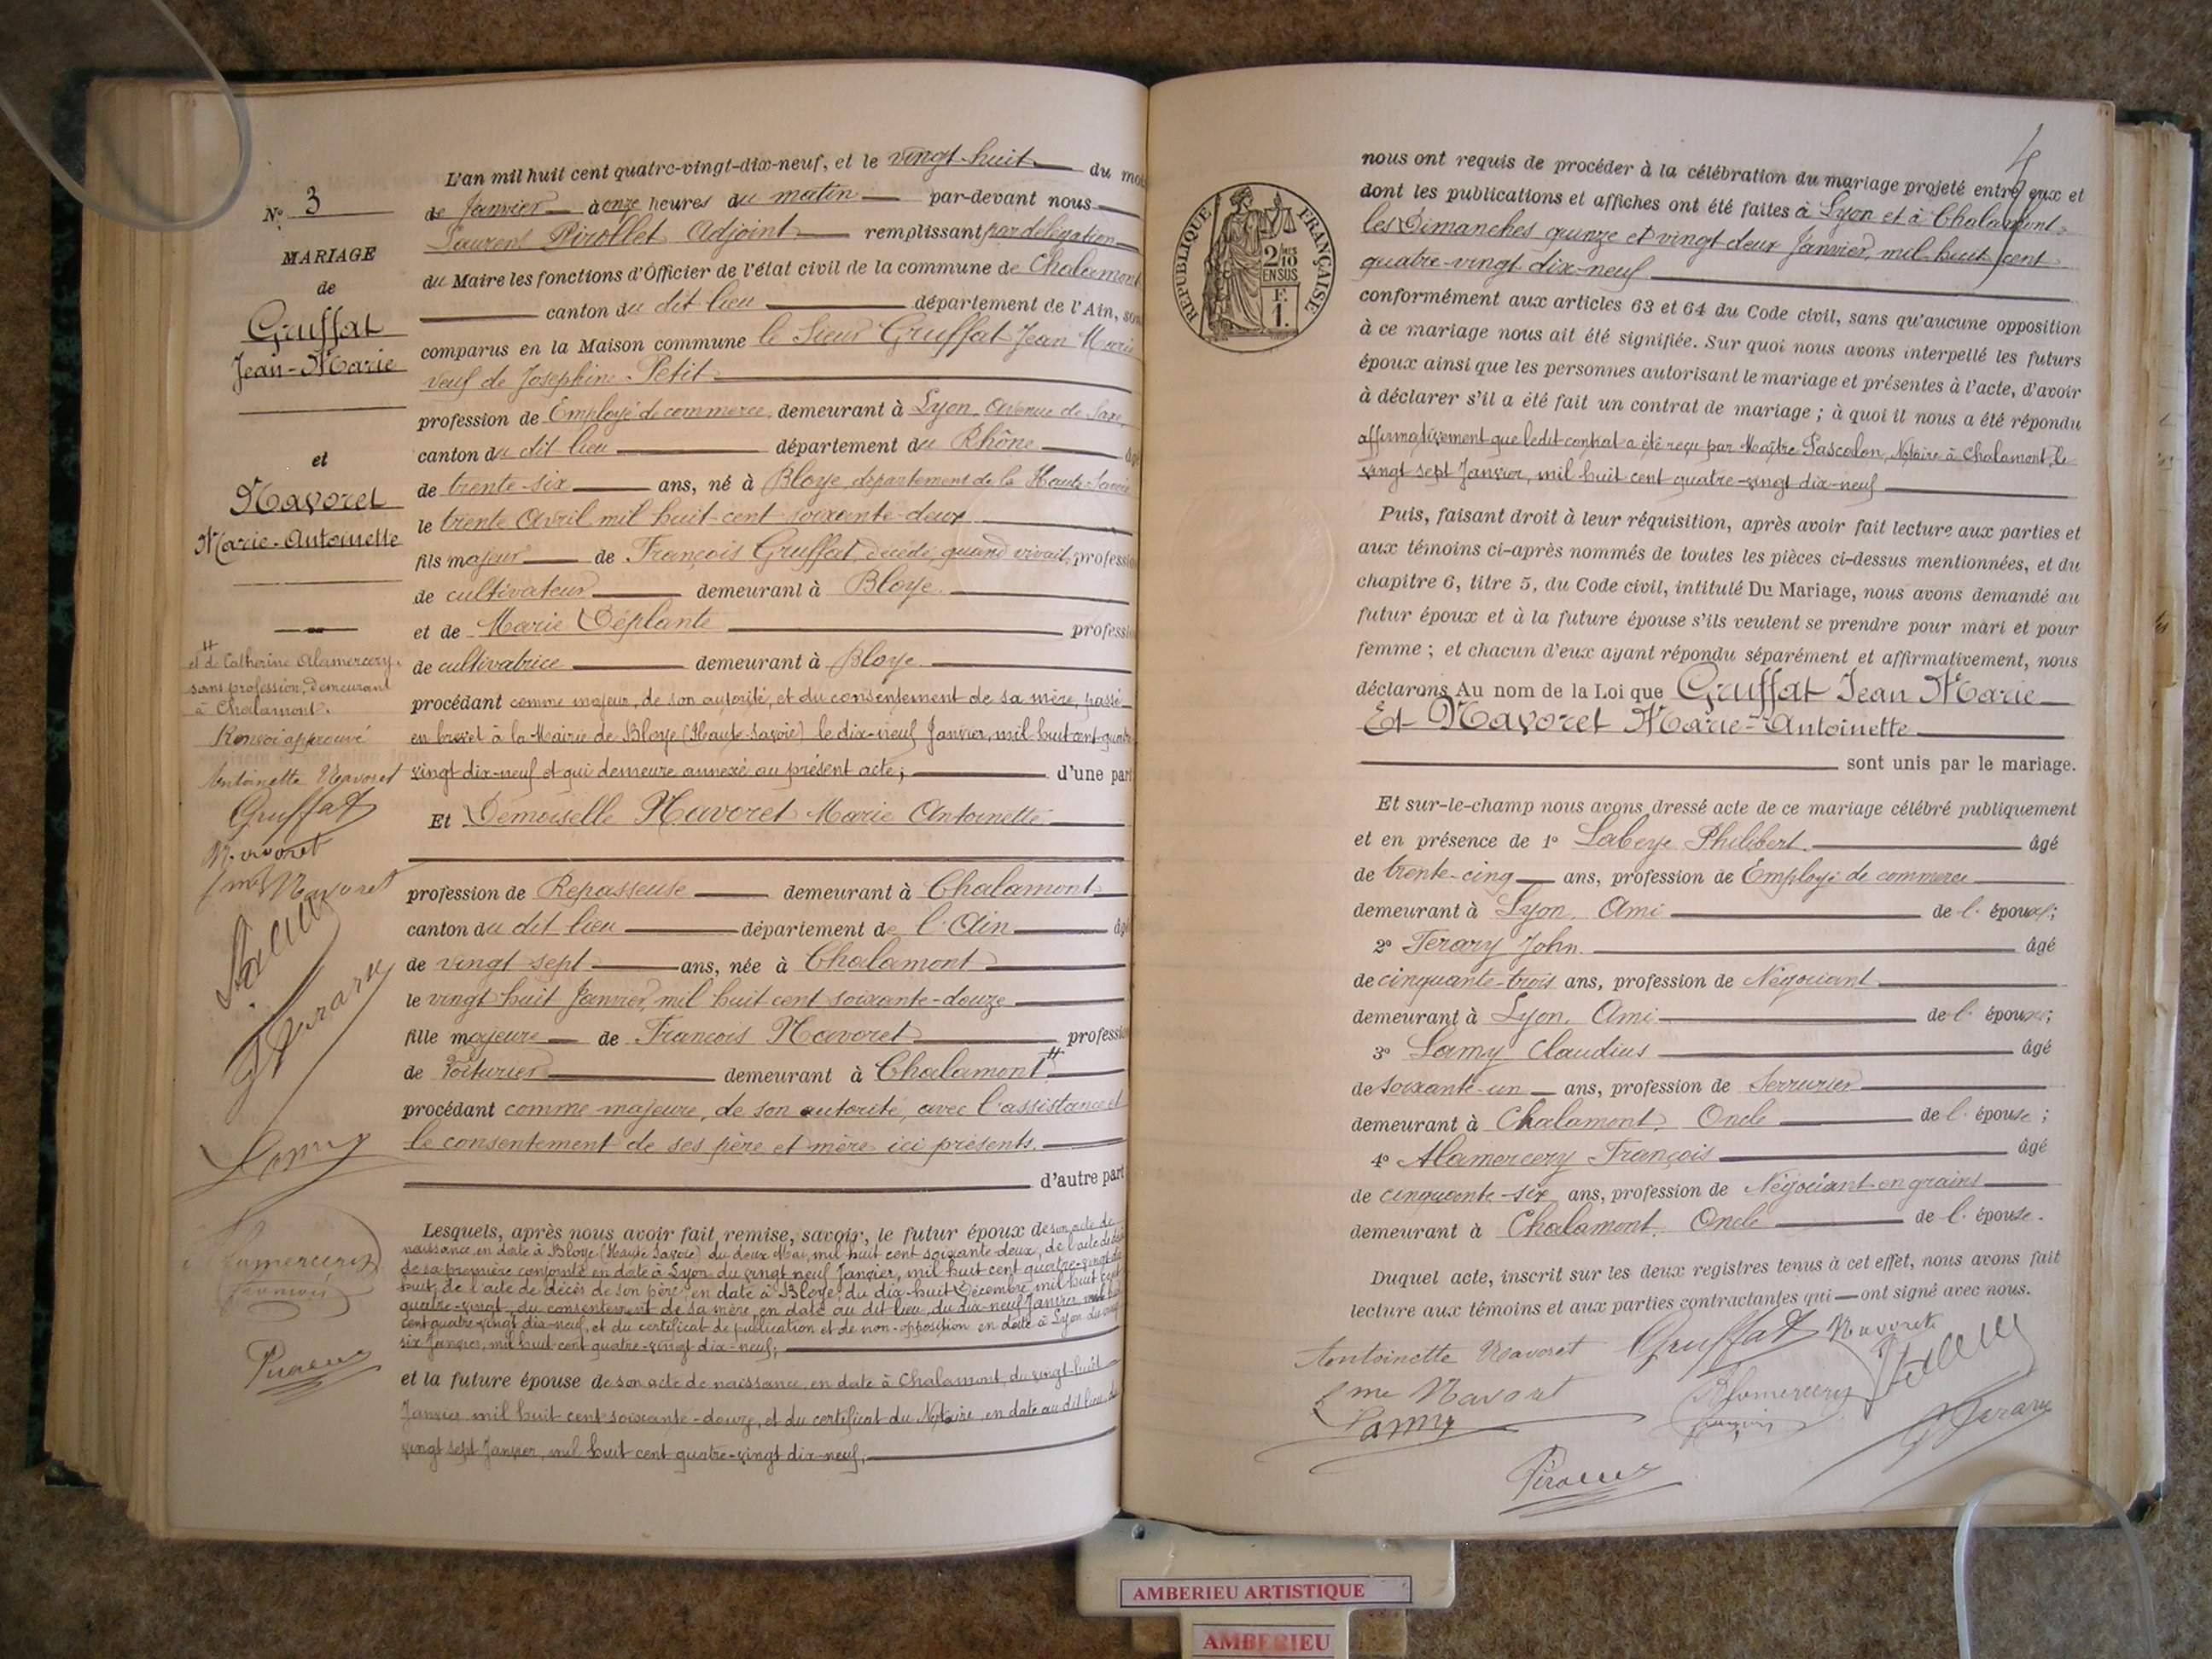 N° 3
MARIAGE
de
Gruffat
Jean-Marie
et
Navoret
Marie-Antoinette
et de Catherine Alamercery,
sans profession, demeurant
à Chalamont.
Renvoi approuvé
Antoinette Navoret
Gruffat
Navoret
fme Navoret
Lamy
Alamercery
françois
L'an mil huit cent quatre-vingt-dix-neuf, et le vingt-huit du moi
de Janvier à onze heures du matin par-devant nous
Laurent Pirollet Adjoint remplissant par délégation
du Maire les fonctions d'Officier de l'état civil de la commune de Chalamont
canton du dit lieu département de l'Ain, son
comparus en la Maison commune le Sieur Gruffat Jean Marie
veuf de Joséphine Petit
profession de Employé de commerce, demeurant à Lyon, avenue de Saxe,
canton du dit lieu département du Rhône âgé
de trente-six ans, né à Bloye, département de la Haute-Savoie
le trente Avril mil huit-cent soixante-deux
fils majeur de François Gruffat, décédé, quand vivait, professio
de cultivateur demeurant à Bloye.
et de Marie Déplante professio
de cultivatrice demeurant à Bloye.
procédant comme majeur, de son autorité, et du consentement de sa mère, passé
en brevet à la Mairie de Bloye (Haute-Savoie) le dix-neuf Janvier, mil huit cent quatre
vingt dix-neuf et qui demeure annexé au présent acte; d'une part
Et Demoiselle Navoret Marie Antoinette
profession de Repasseuse demeurant à Chalamont
canton du dit lieu département de l'Ain âgé
de vingt sept ans, née à Chalamont
le vingt huit Janvier, mil huit cent soixante-douze
fille majeure de François Navoret professio
de Voiturier demeurant à Chalamont
procédant comme majeure, de son autorité, avec l'assistance et
le consentement de ses père et mère ici présents.
d'autre part
Lesquels, après nous avoir fait remise, savoir, le futur époux de son acte de
naissance en date à Bloye (Haute Savoie) du deux Mai, mil huit cent soixante-deux, de l'acte de décès
de sa première conjointe en date à Lyon du vingt neuf Janvier, mil huit cent quatre-vingt-dix
huit, de l'acte de décès de son père en date à Bloye, du dix-huit Décembre mil huit cent
quatre-vingt, du consentement de sa mère, en date au dit lieu, du dix-neuf Janvier, mil huit
cent quatre-vingt dix-neuf, et du certificat de publication et de non-opposition en date à Lyon du vingt
six Janvier, mil huit cent quatre-vingt-dix-neuf;
et la future épouse de son acte de naissance en date à Chalamont, du vingt-huit
Janvier mil huit cent soixante-douze, et du certificat du Notaire, en date au dit lieu, du
vingt sept Janvier, mil huit cent quatre-vingt dix-neuf,
4
RÉPUBLIQUE FRANÇAISE
2/10
EN SUS
F.
1.
nous ont requis de procéder à la célébration du mariage projeté entre eux et
dont les publications et affiches ont été faites à Lyon et à Chalamont
les Dimanches quinze et vingt-deux Janvier, mil huit cent
quatre-vingt dix-neuf
conformément aux articles 63 et 64 du Code civil, sans qu'aucune opposition
à ce mariage nous ait été signifiée. Sur quoi nous avons interpellé les futurs
époux ainsi que les personnes autorisant le mariage et présentes à l'acte, d'avoir
à déclarer s'il a été fait un contrat de mariage ; à quoi il nous a été répondu
affirmativement que ledit contrat a été reçu par Maître Pascalon, Notaire à Chalamont, le
vingt sept Janvier, mil huit cent quatre-vingt dix-neuf
Puis, faisant droit à leur réquisition, après avoir fait lecture aux parties et
aux témoins ci-après nommés de toutes les pièces ci-dessus mentionnées, et du
chapitre 6, titre 5, du Code civil, intitulé Du Mariage, nous avons demandé au
futur époux et à la future épouse s'ils veulent se prendre pour mari et pour
femme ; et chacun d'eux ayant répondu séparément et affirmativement, nous
déclarons Au nom de la Loi que Gruffat Jean Marie
Et Navoret Marie-Antoinette
sont unis par le mariage.
Et sur-le-champ nous avons dressé acte de ce mariage célébré publiquement
et en présence de 1° Labeye Philibert âgé
de trente-cinq ans, profession de Employé de commerce
demeurant à Lyon, Ami de l'époux;
2° Ferary John. âgé
de cinquante-trois ans, profession de Négociant
demeurant à Lyon, Ami de l'époux;
3° Lamy Claudius âgé
de soixante-un ans, profession de Serrurier
demeurant à Chalamont, Oncle de l'épouse ;
4° Alamercery François âgé
de cinquante-six ans, profession de Négociant en grains
demeurant à Chalamont. Oncle de l'épouse.
Duquel acte, inscrit sur les deux registres tenus à cet effet, nous avons fait
lecture aux témoins et aux parties contractantes qui ont signé avec nous.
Antoinette Navoret Gruffat Navoret
fme Navoret Alamercery
Lamy françois
AMBERIEU ARTISTIQUE
AMBERIEU